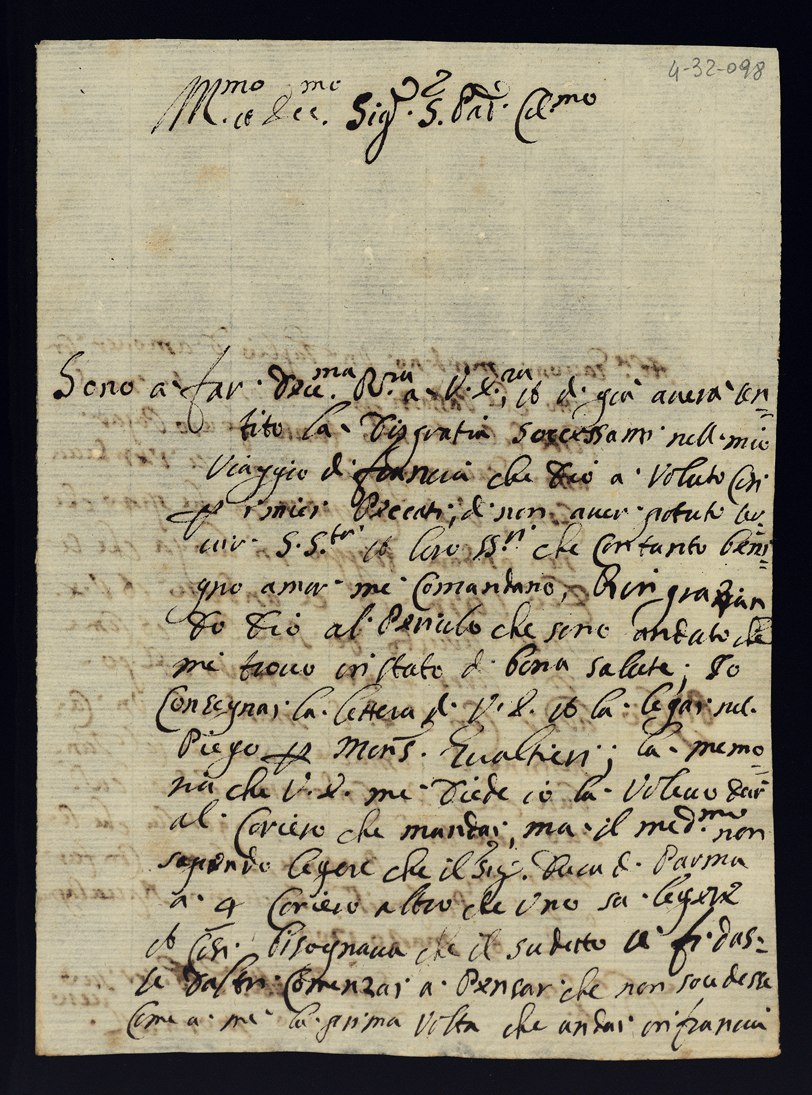 4-32-098
Ill.mo et Ecc.mo Sig.r S. Pad. Col.mo
Sono a far Sua R.a a V.E.za, et di gia avera sen=
tito la disgratia soccessami nell mio
viaggio di francia che Dio a voluto Cosi
p i miei Peccati; di non aver potuto ser=
uir S.S.tri et loro SS.ri che Con tanto beni=
gno amor me Comandano, Ringrazian
do Dio al Periculo che sono andato che
mi trovo in stato di bona salute; Io
Consegnai la lettera d. V.E. et la legai nel
Piego p Mons. Gualtieri; la memo=
ria che V.E. me diede io la volevo dar
al Coriero che mandai, ma il med.mo non
sapendo legere che il Sig. Duca d. Parma
a 4 Coriero altro che uno sa legere
et Cosi bisognava che il sudetto se fidas=
se d'altri Comenzai a Pensar che non soudesse
Come a me la prima volta che andai in francia